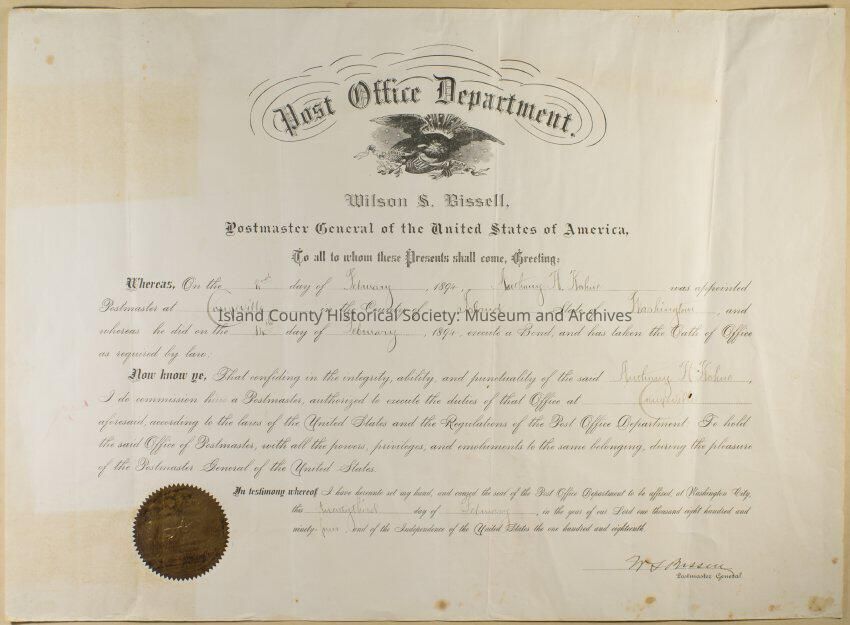 Post Office Department.
Wilson S. Bissell,
Postmaster General of the United States of America,
To all to whom these Presents shall come, Greeting:
Whereas, On the day of February, 1894, Anthony H. Kohne was appointed
Postmaster at Coupeville, in the County of Island State of Washington, and
Island County Historical Society: Museum and Archives
whereas he did on the 14th day of February, 1894, execute a Bond, and has taken the Oath of Office
as required by law.
Now know ye, That confiding in the integrity, ability, and punctuality of the said Anthony H. Kohne,
I do commission him a Postmaster, authorized to execute the duties of that Office at Coupeville
aforesaid, according to the laws of the United States and the Regulations of the Post Office Department To hold
the said Office of Postmaster, with all the powers, privileges, and emoluments to the same belonging, during the pleasure
of the Postmaster General of the United States.
In testimony whereof I have hereunto set my hand, and caused the seal of the Post Office Department to be affixed, at Washington City,
this day of February, in the year of our Lord one thousand eight hundred and
ninety-four, and of the Independence of the United States the one hundred and eighteenth.
W S Bissell
Postmaster General